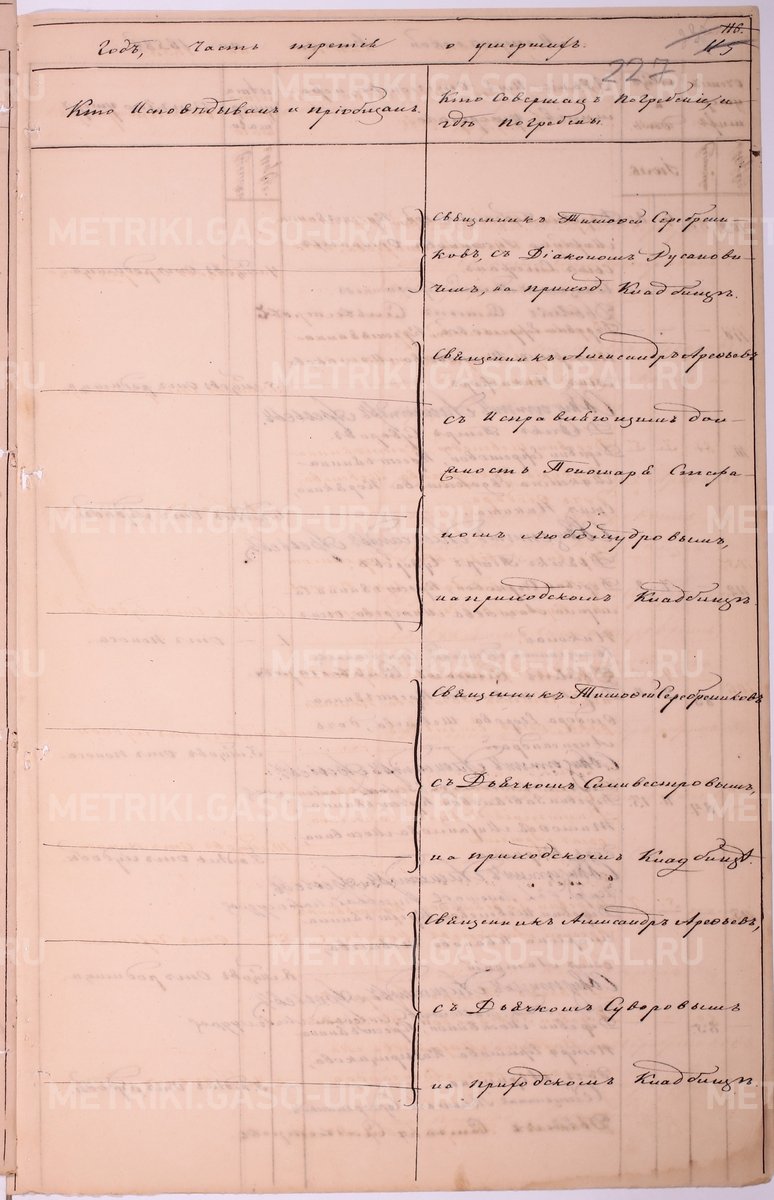 116.
115
Годъ, часть третія о умершихъ.
227
Кто Исповѣдывалъ и пріобщалъ.
Кто Совершалъ погребеніе, и
гдѣ погребены.
Священникъ Тимоѳей Серебрени-
ковъ, съ Діакономъ Русанови-
чемъ, на приход. Кладбищѣ.
Священникъ Александръ Арефьевъ
съ Исправляющимъ дол-
жность Пономаря Стефа-
номъ Любомудровымъ,
на приходскомъ Кладбищѣ.
Священникъ Тимоѳей Серебрениковъ
съ Дьячкомъ Силивестровымъ,
на приходскомъ Кладбищѣ.
Священникъ Александръ Арефьевъ,
съ Дьячкомъ Суворовымъ
на Приходскомъ Кладбищѣ.
METRIKI.GASO-URAL.RU